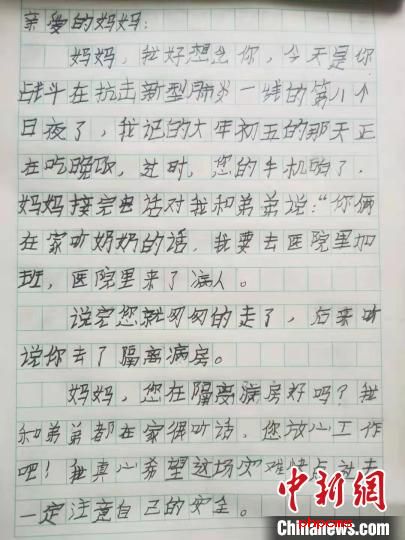 亲爱的妈妈：
妈妈，我好想念你，今天是你
战斗在抗击新型肺炎一线的第八个
日夜了，我记的大年初五的那天正
在吃晚饭，这时，您的手机响了，
妈妈接完电话对我和弟弟说："你俩
在家听奶奶的话，我要去医院里加
班，医院里来了病人。
说完您就匆匆的走了，后来听
说你去了隔离病房。
妈妈，您在隔离病房好吗？我
和弟弟都在家很听话，您放心工作
吧！我真心希望这场灾难快点过去
一定注意自己的安全。
中新网
Chinanews.com